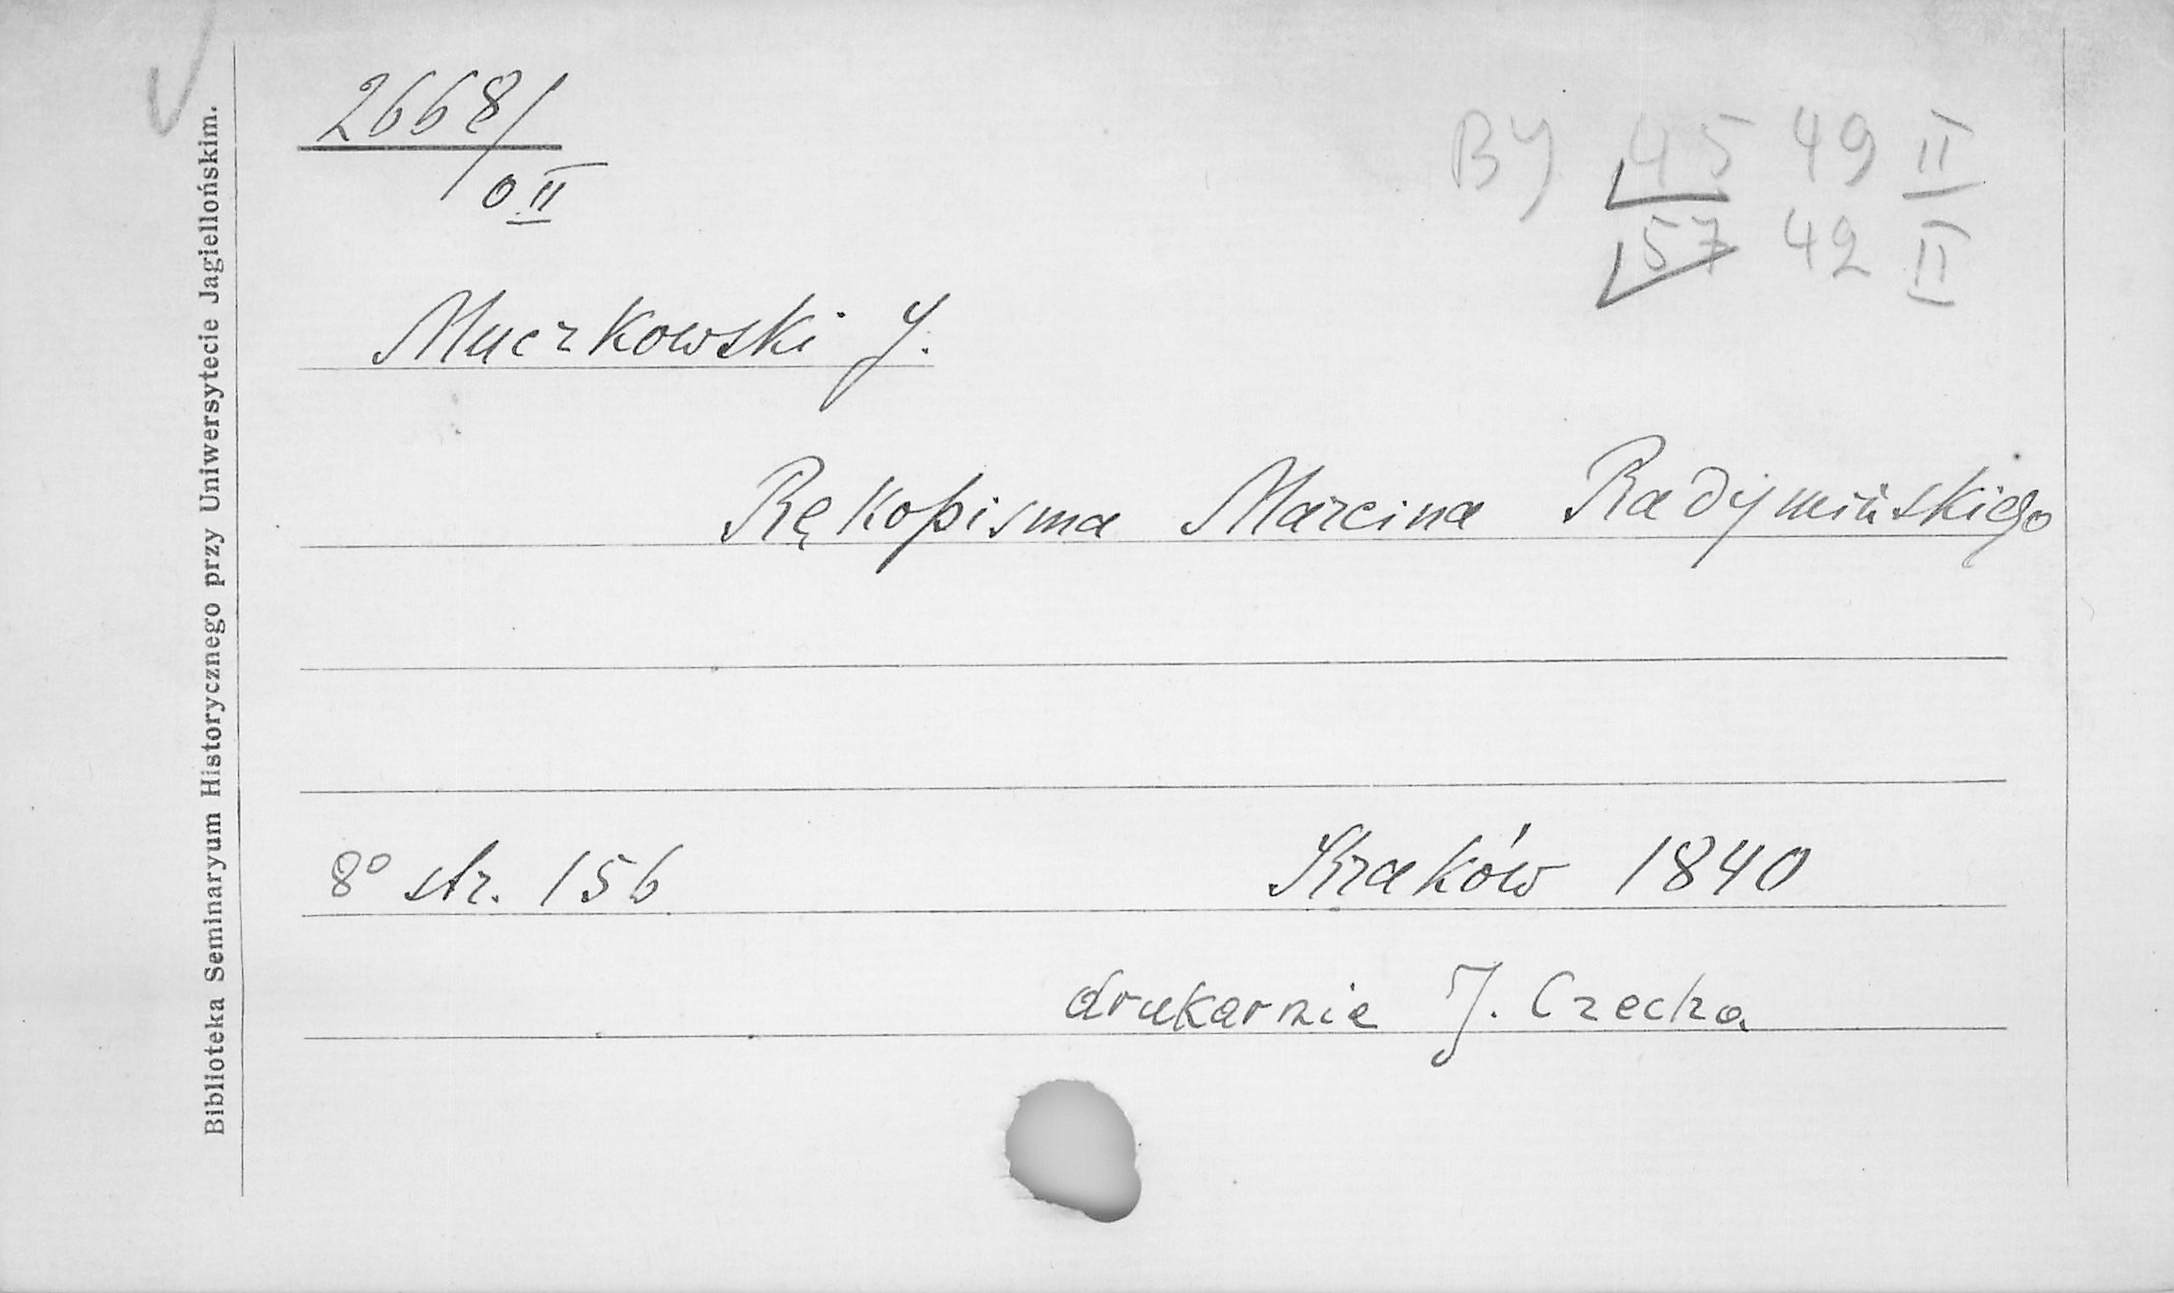 2668/
0 II
BJ 45 49 II
57 42 II
Muczkowski J.
Rękopisma Marcina Radymińskiego
8° str. 156
Kraków 1840
drukarnia J. Czecha
Biblioteka Seminaryum Historycznego przy Uniwersytecie Jagiellońskim.